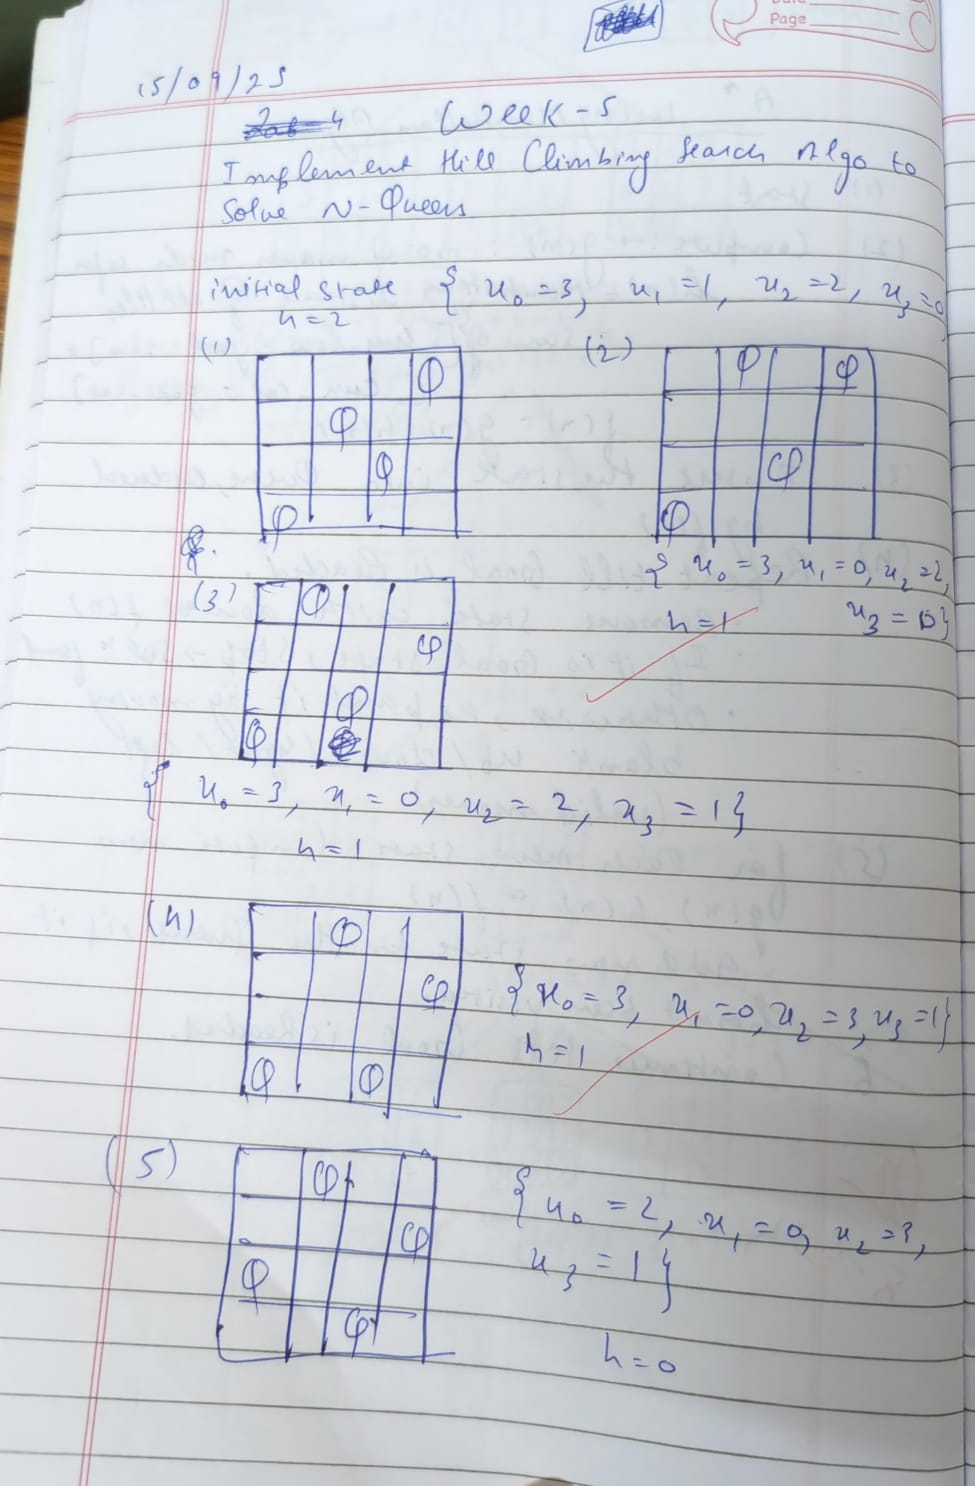 Page
15/09/25
Week-5
Implement Hill Climbing Search Algo to
Solve N-Queens
initial state { x₀ = 3, x₁ = 1, x₂ = 2, x₃ = 0
h = 2
(1) (2)
Q Q Q
Q
Q Q
Q Q
{ x₀ = 3, x₁ = 0, x₂ = 2,
x₃ = 0}
h = 1
(3)
Q
Q
Q
Q
{ x₀ = 3, x₁ = 0, x₂ = 2, x₃ = 1}
h = 1
(4)
Q
Q
Q Q
{x₀ = 3, x₁ = 0, x₂ = 3, x₃ = 1}
h = 1
(5)
Q
Q
Q
Q
{ x₀ = 2, x₁ = 0, x₂ = 3,
x₃ = 1 }
h = 0